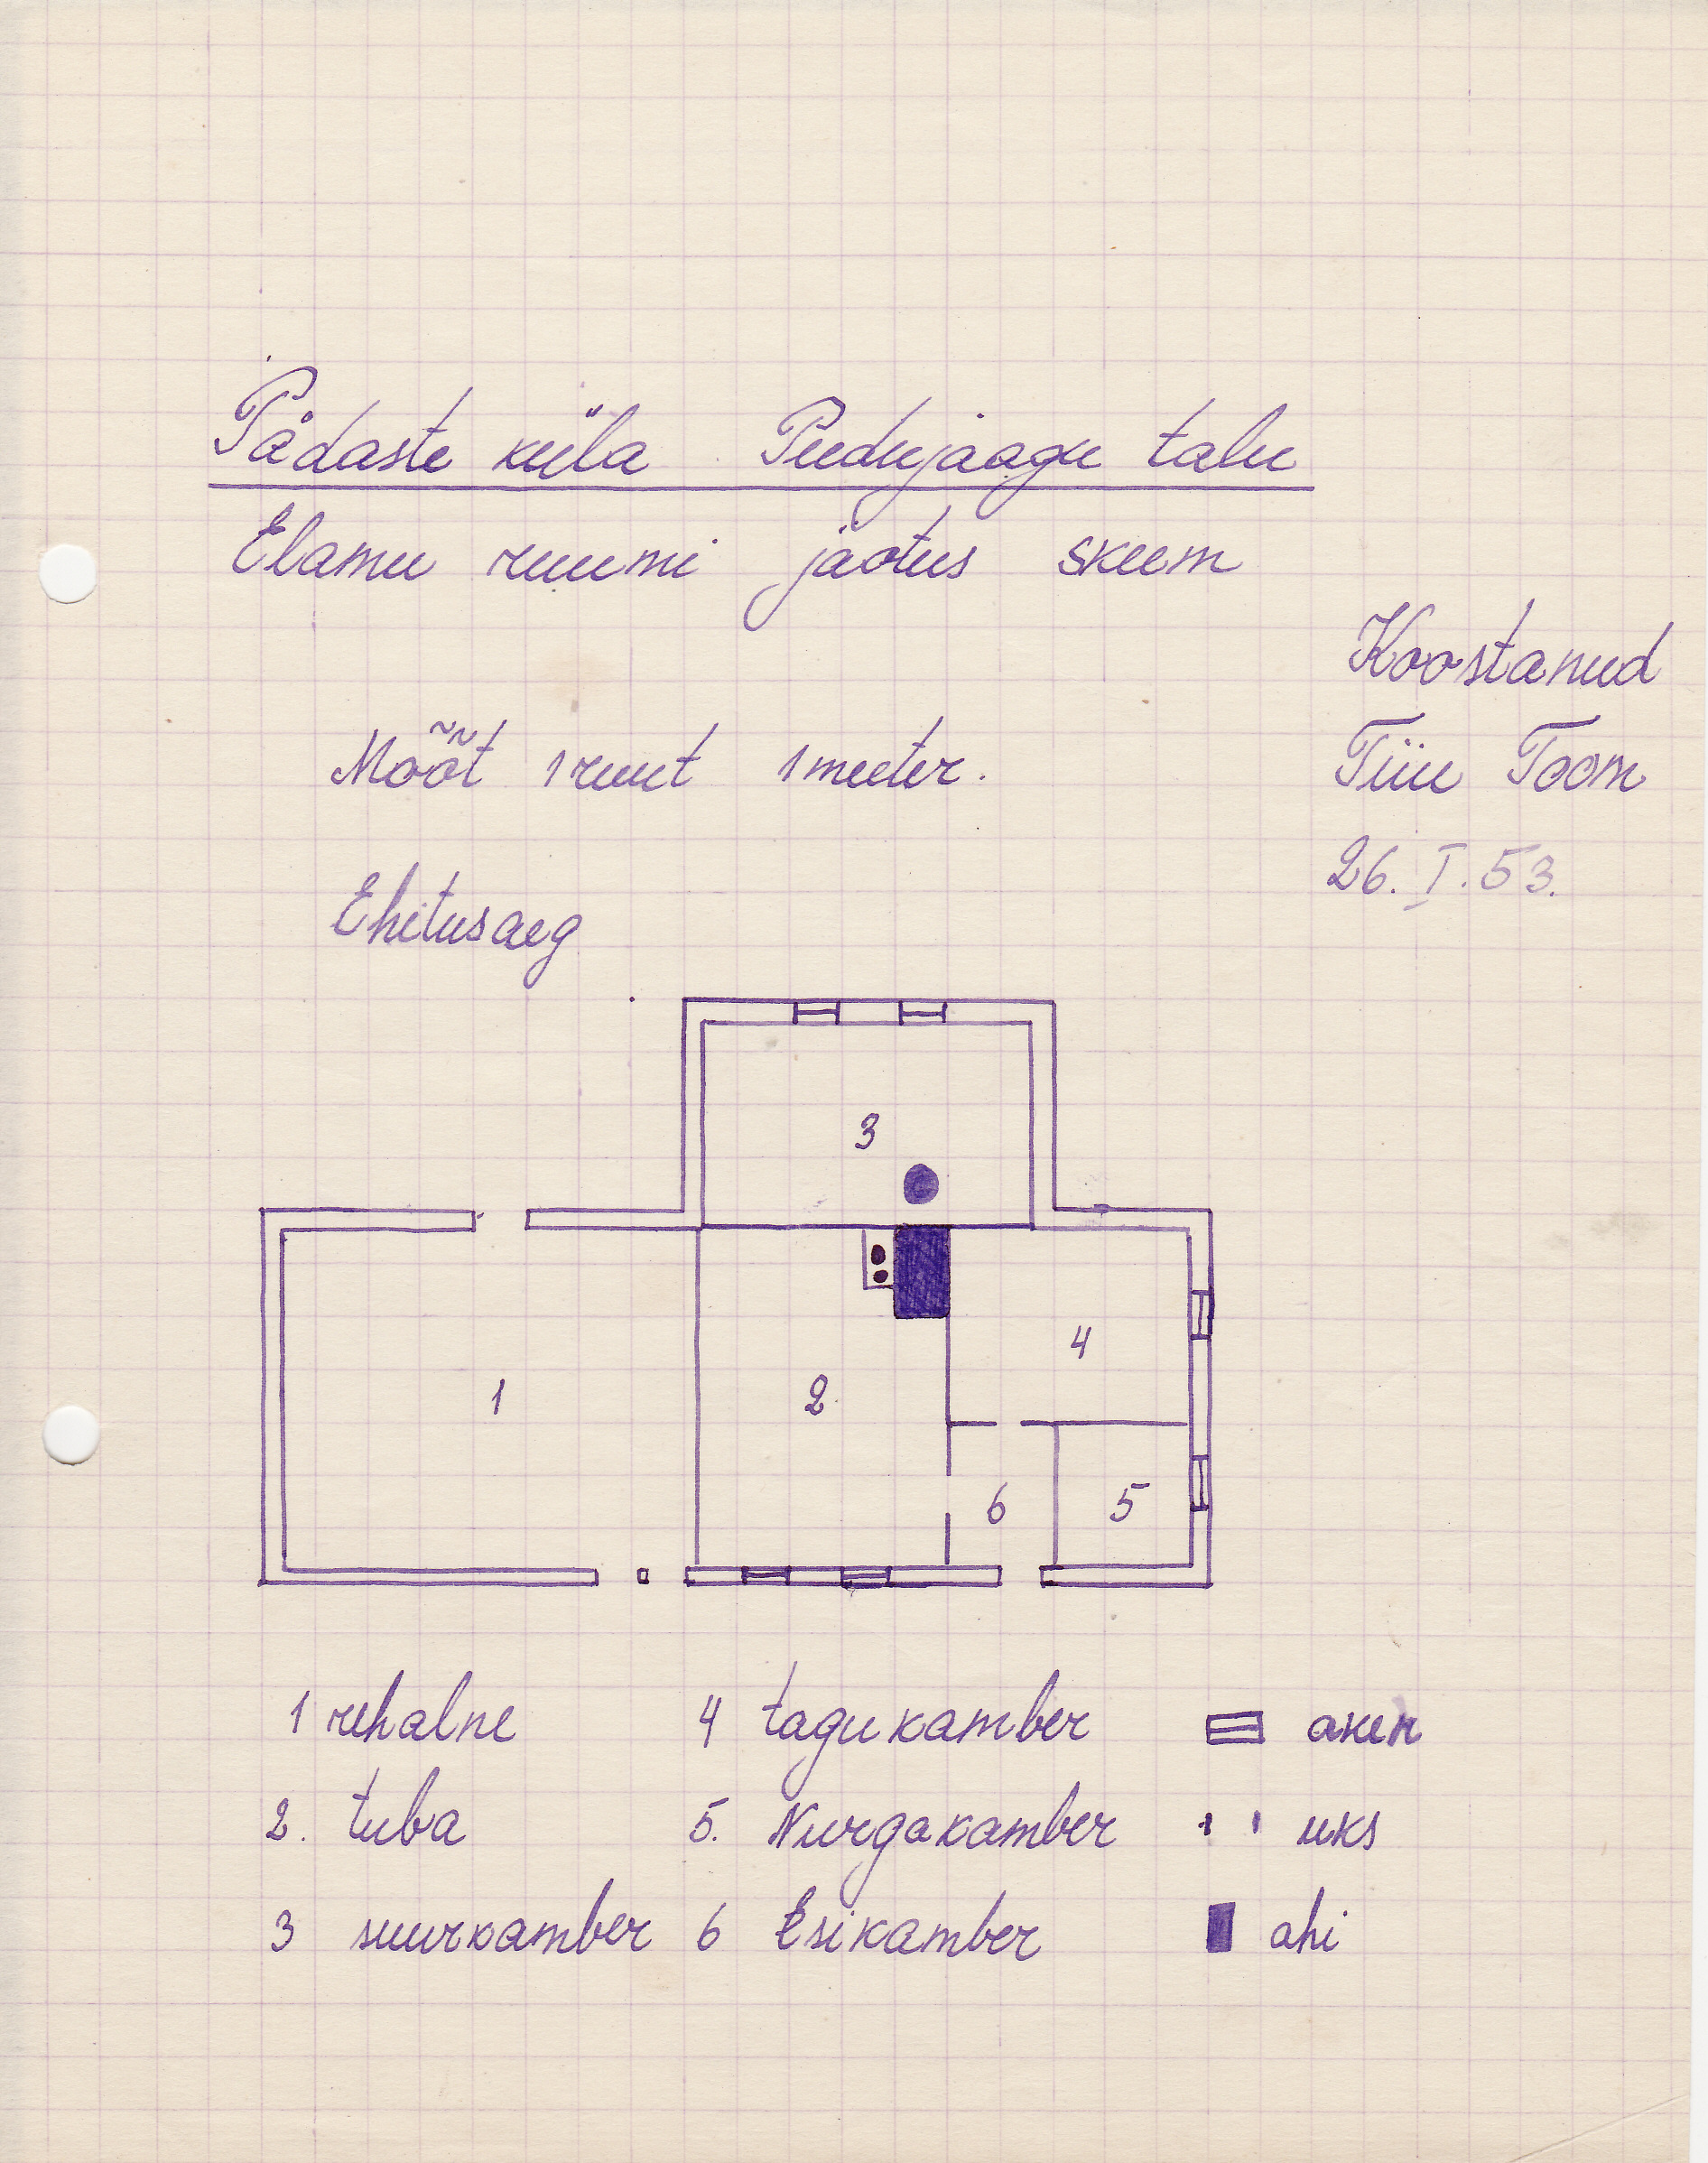 Pädaste küla Peedujaagu talu
Elamu ruumi jaotus skeem
Koostanud
Mõõt 1 ruut 1 meeter.
Tiiu Toom
26. I. 53.
Ehitusaeg
3
4
1
2
6
5
1 rehalne
4 tagukamber
aken
2. tuba
5. Nurgakamber
uks
3 suurkamber
6 Esikamber
ahi